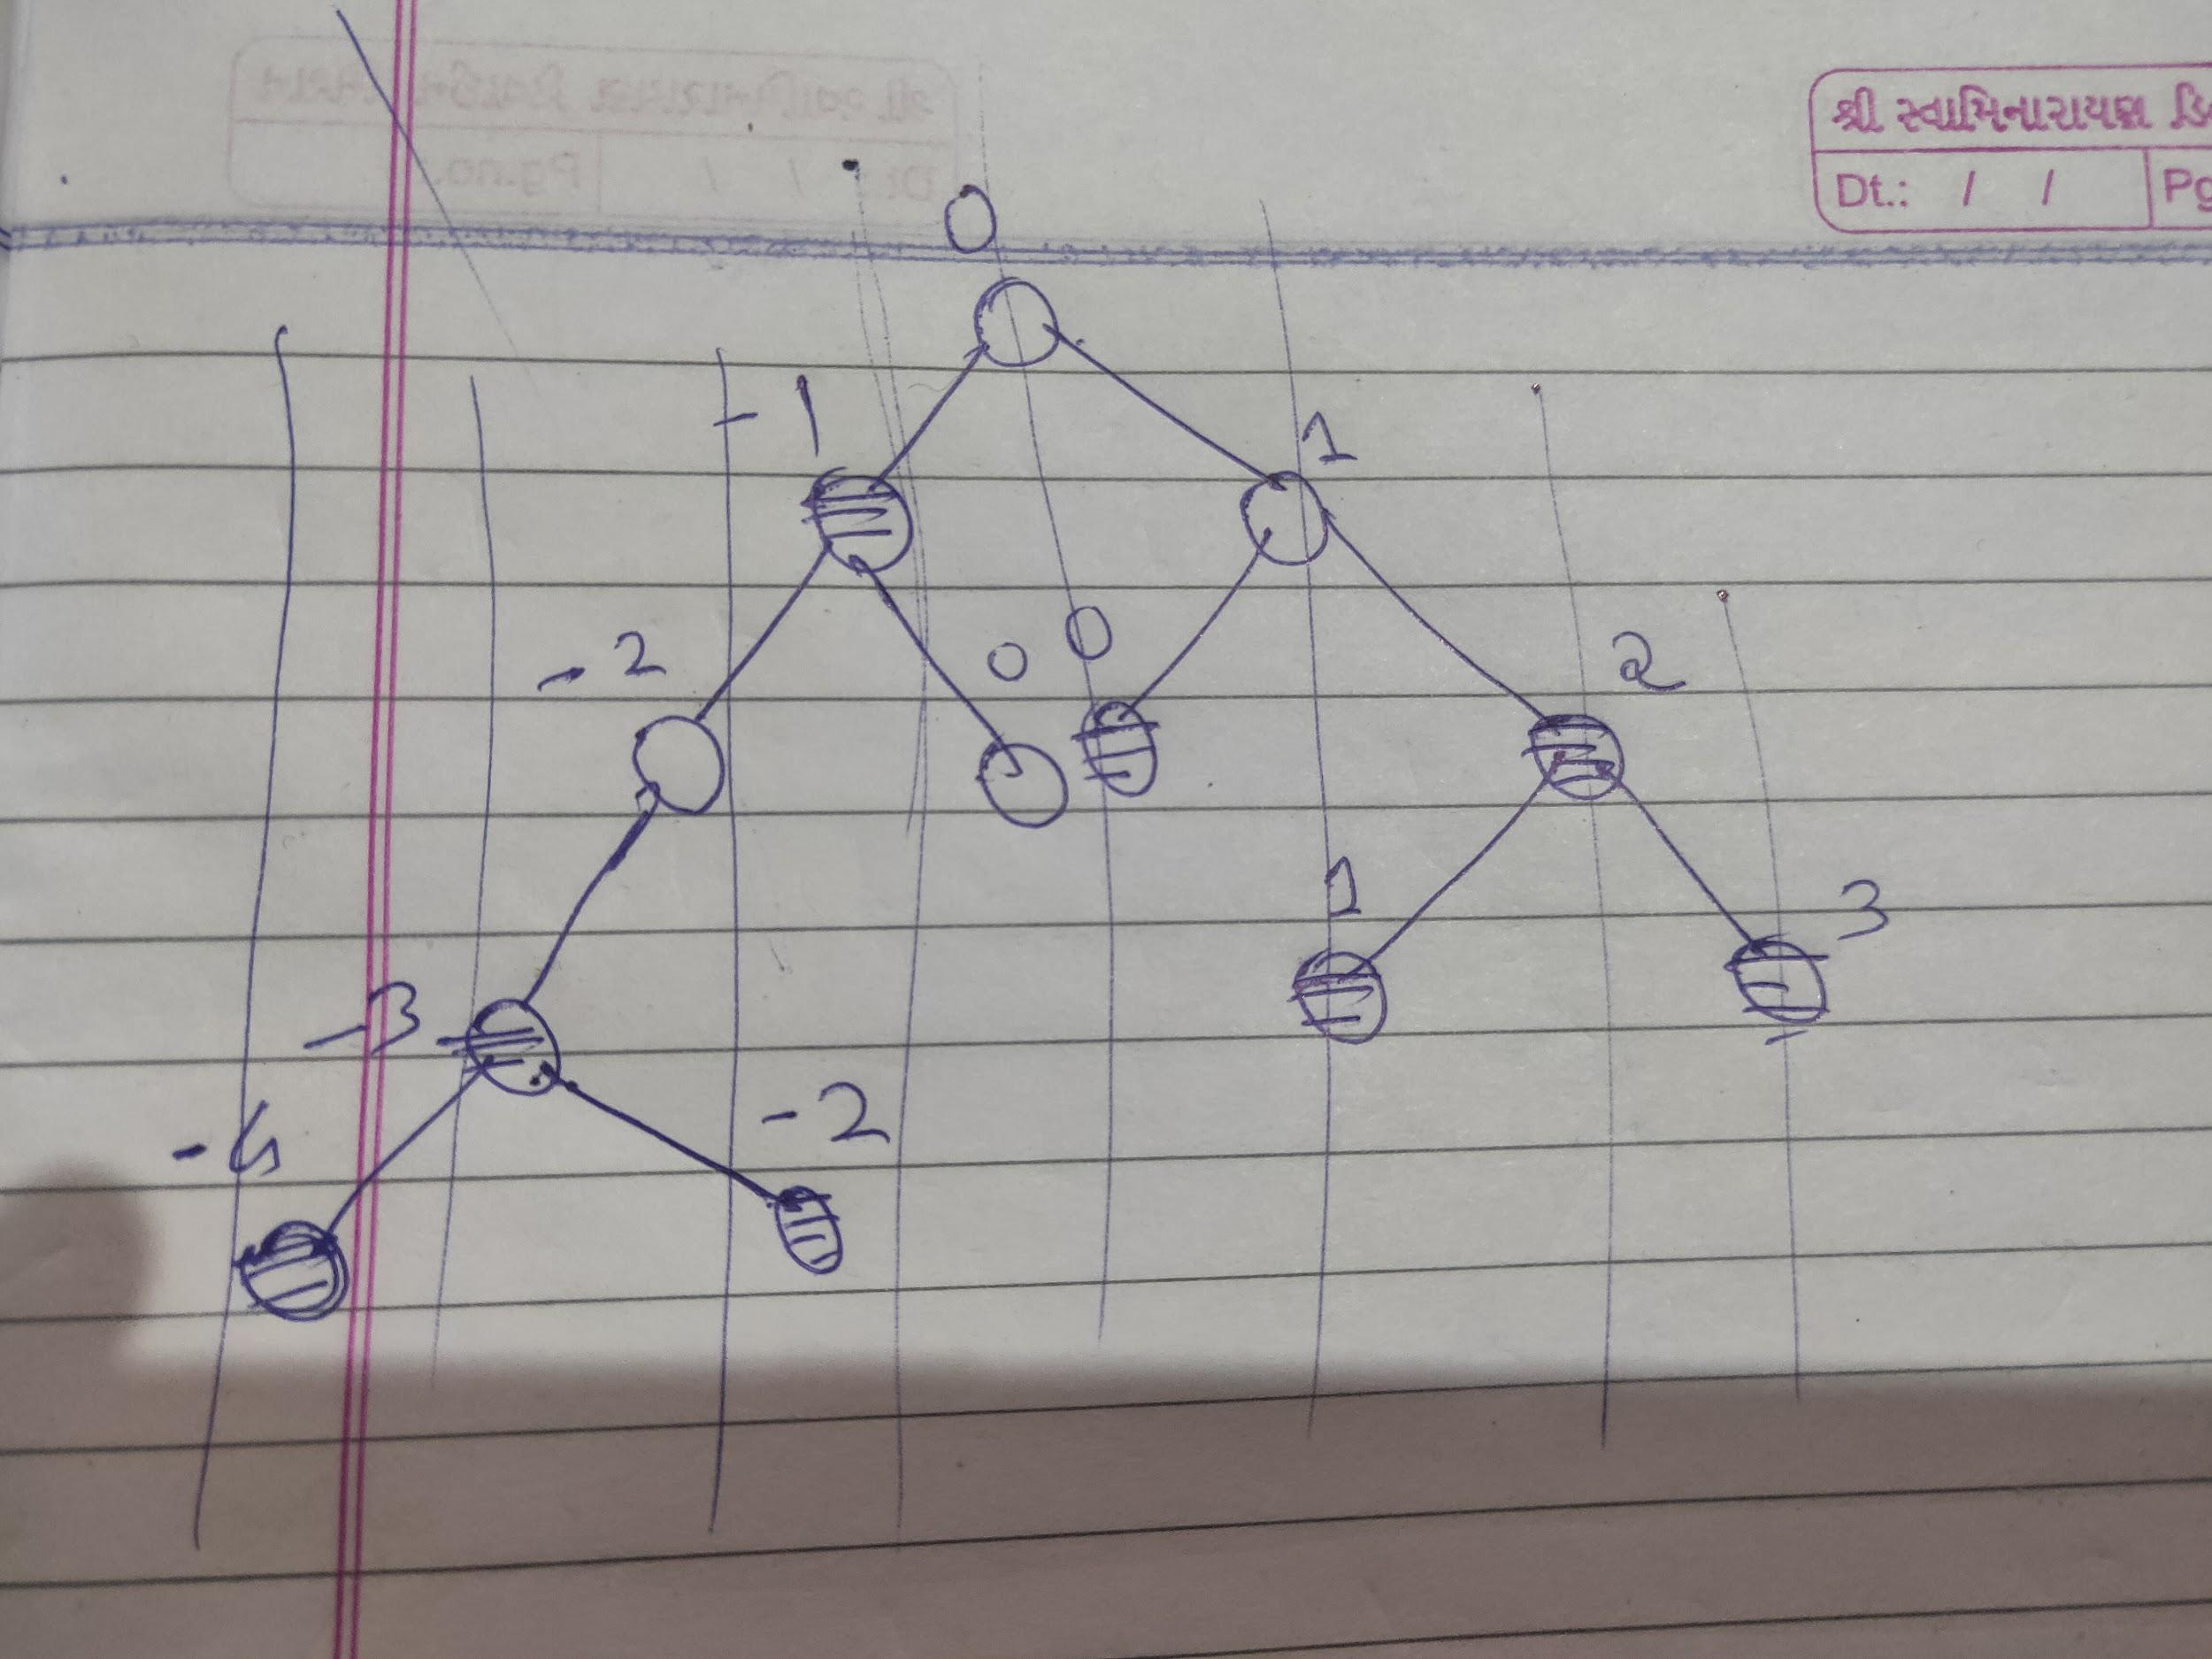 શ્રી સ્વામિનારાયણ
Dt.: / / Pg
0
-1 1
-2 0 0 2
1 3
-3
-4 -2